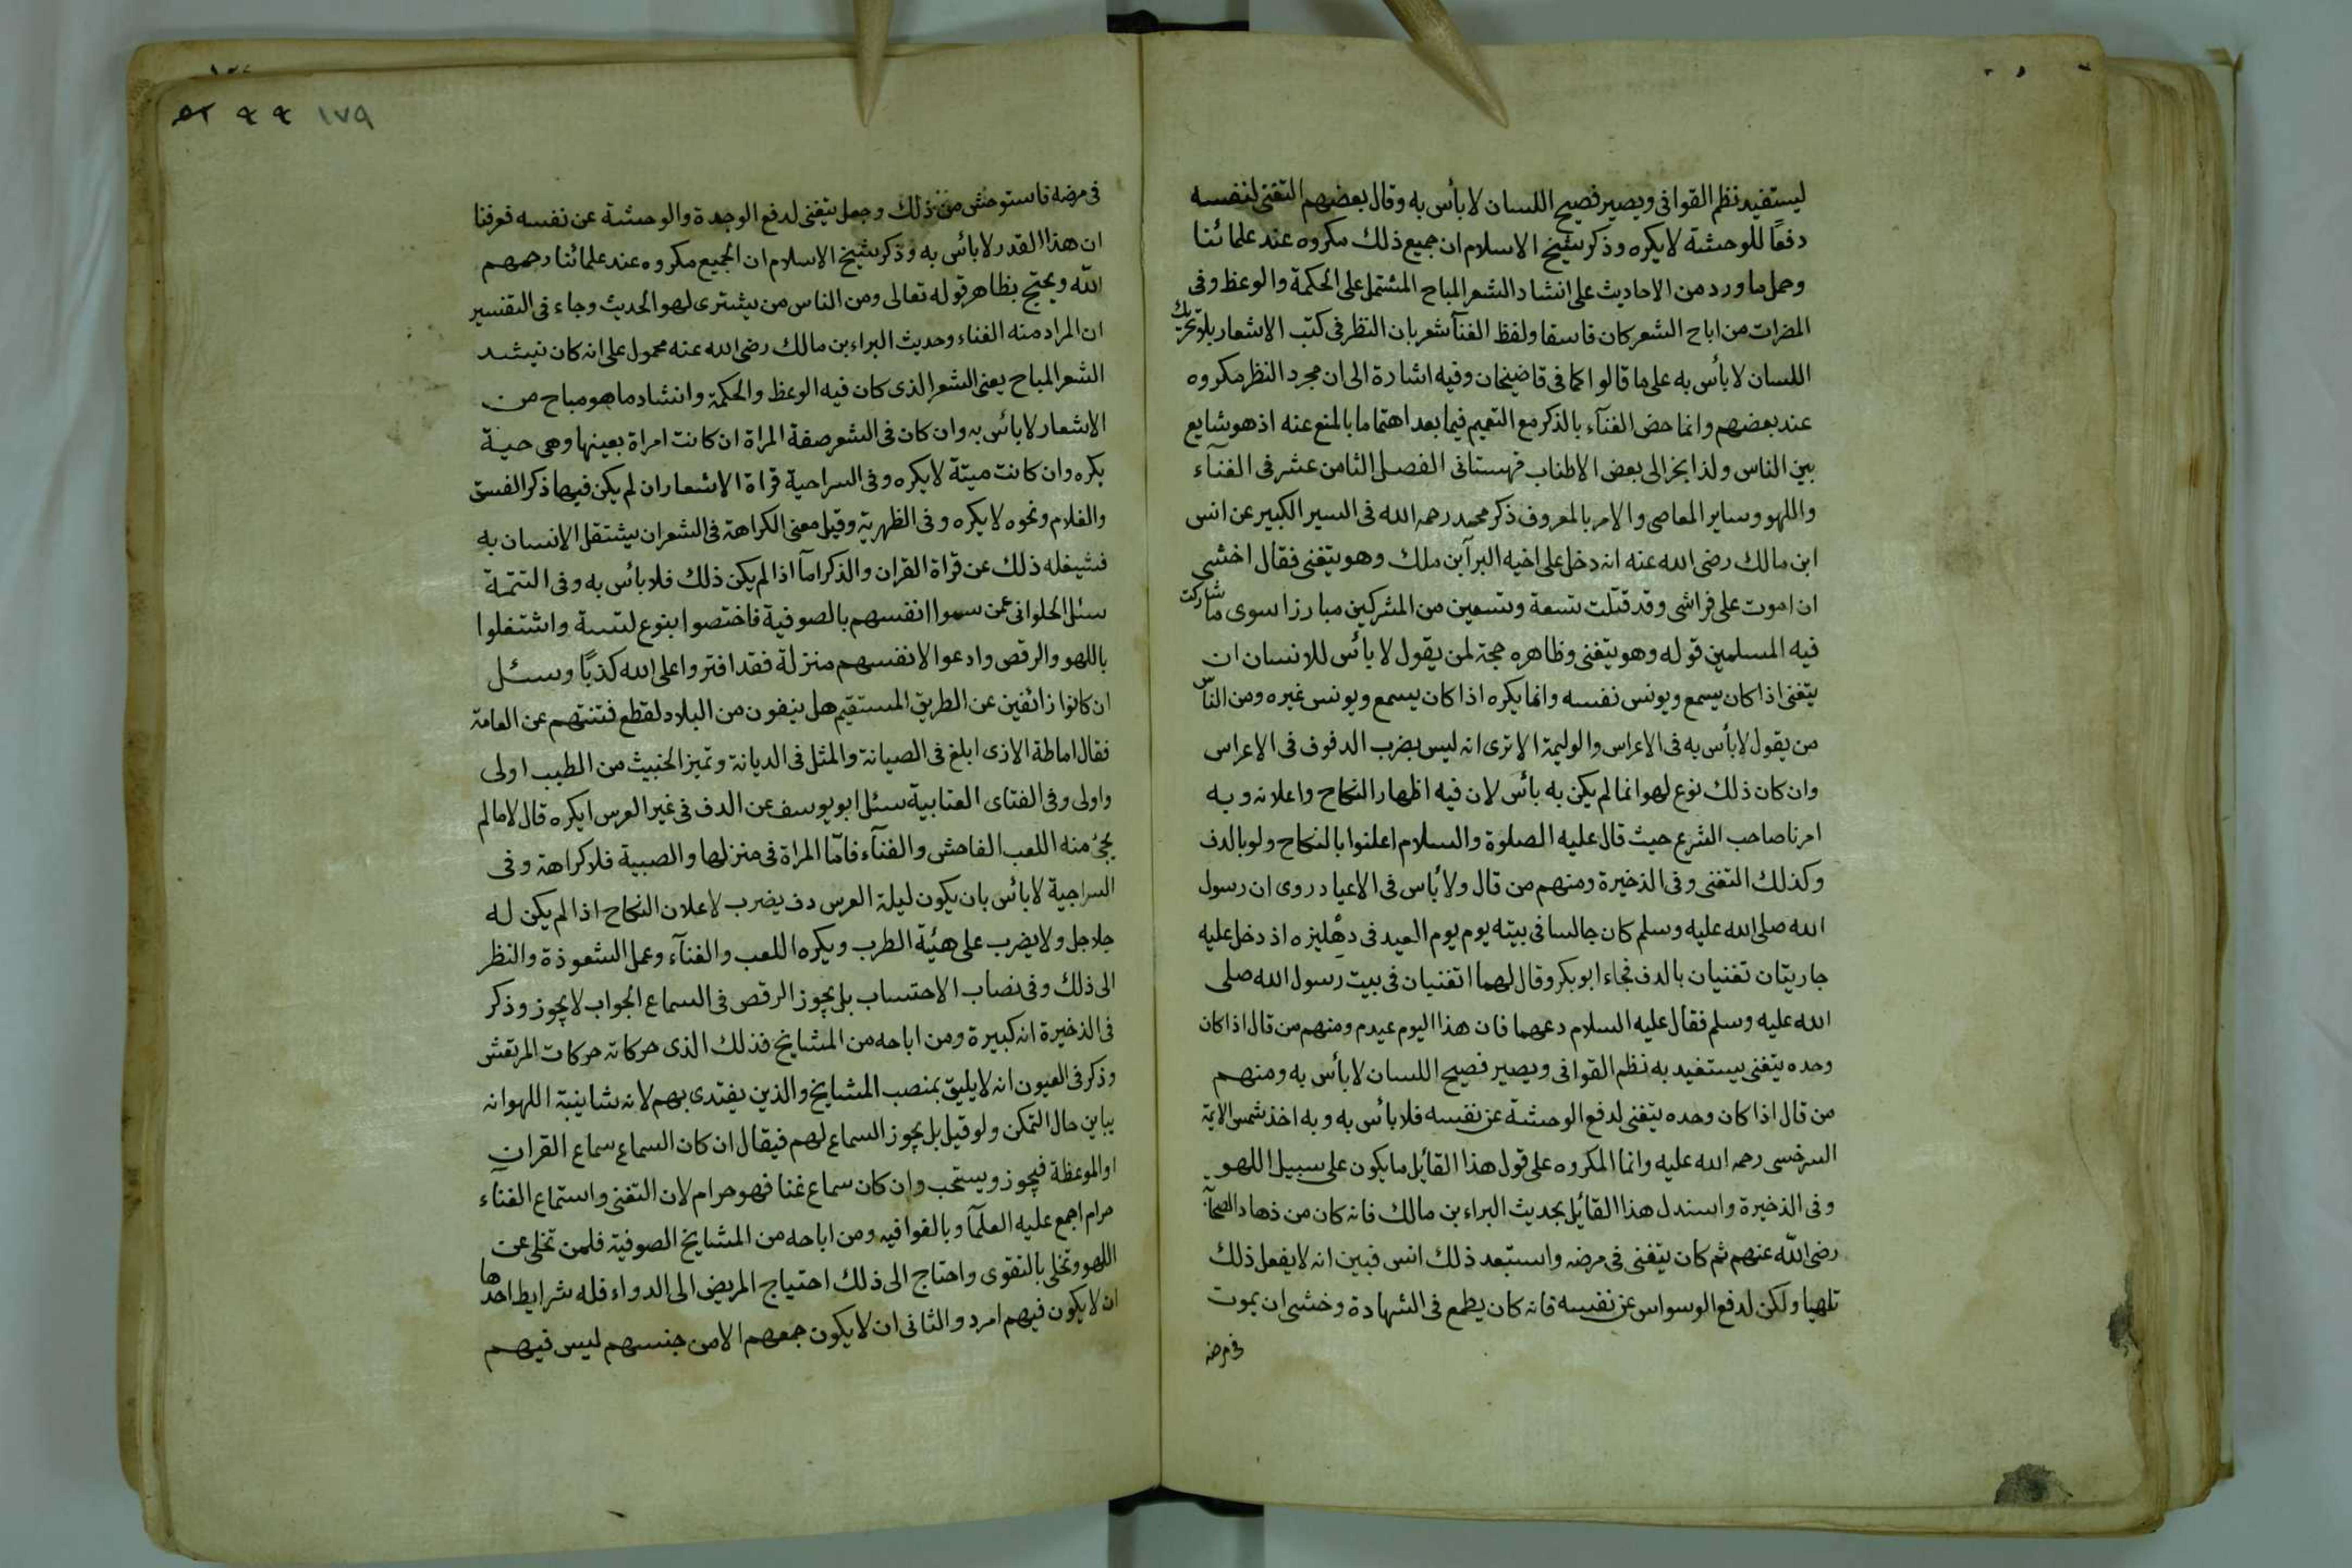 ليستفيد نظم القوافى ويصير فصيح اللسان لا بأس به وقال بعضهم التغنى لنفسه
دفعًا للوحشة لا يكره وذكر شيخ الاسلام ان جميع ذلك مكروه عند علمائنا
وحمل ما ورد من الاحاديث على انشاد الشعر المباح المشتمل على الحكمة والوعظ وفى
المضرات من اباح الشعر كان فاسقا ولفظ الغنآ شعر بان النظر فى كتب الاشعار بلا تحريك
اللسان لا بأس به على ما قالوا كما فى قاضيخان وفيه اشارة الى ان مجرد النظر مكروه
عند بعضهم وانما خص الغنآء بالذكر مع التعميم فيما بعد اهتماما بالمنع عنه اذ هو شايع
بين الناس ولذا بخر الى بعض الاطناب قهستانى الفصل الثامن عشر فى الغنآء
واللهو وساير المعاصى والامر بالمعروف ذكر محمد رحمه الله فى السير الكبير عن انس
ابن مالك رضى الله عنه انه دخل على اخيه البرآ بن ملك وهو يتغنى فقال اخشى
ان اموت على فراشى وقد قتلت تسعة وتسعين من المشركين مبارزا سوى ما شاركت
فيه المسلمين قوله وهو يتغنى وظاهره حجة لمن يقول لا بائس للانسان ان
يتغنى اذا كان يسمع ويونس نفسه وانما يكره اذا كان يسمع ويونس غيره ومن الناس
من يقول لا بأس به فى الاعراس والوليمة الا ترى انه ليس بضرب الدفوف فى الاعراس
وان كان ذلك نوع لهو انما لم يكن به بائس لان فيه اظهار النكاح واعلانه وبه
امرنا صاحب الشرع حيث قال عليه الصلوة والسلام اعلنوا بالنكاح ولو بالدف
وكذلك التغنى وفى الذخيرة ومنهم من قال ولا بأس فى الاعياد روى ان رسول
الله صلى الله عليه وسلم كان جالسا فى بيته يوم يوم العيد فى دهليزه اذ دخل عليه
جاريتان تغنيان بالدف فجاء ابو بكر وقال لهما اتغنيان فى بيت رسول الله صلى
الله عليه وسلم فقال عليه السلام دعهما فان هذا اليوم عيدم ومنهم من قال اذا كان
وحده يتغنى يستفيد به نظم القوافى ويصير فصيح اللسان لا بأس به ومنهم
من قال اذا كان وحده يتغنى لدفع الوحشة عن نفسه فلا بائس به وبه اخذ شمس الايمة
السرخسى رحمه الله عليه وانما المكروه على قول هذا القائل ما يكون على سبيل اللهو
وفى الذخيرة واستدل هذا القائل بحديث البراء بن مالك فانه كان من ذهاد الصحآبة
رضى الله عنهم ثم كان يتغنى فى مرضه واستبعد ذلك انس فبين انه لا يفعل ذلك
تلهيا ولكن لدفع الوسواس عن نفسه فانه كان يطمع فى الشهادة وخشى ان يموت
فى مرضه
١٧٩
فى مرضه فاستوحش من ذلك وجعل يتغنى لدفع الوحدة والوحشة عن نفسه فعرفنا
ان هذا القدر لا بائس به وذكر شيخ الاسلام ان الجميع مكروه عند علمائنا رحمهم
الله ويحتج بظاهر قوله تعالى ومن الناس من يشترى لهو الحديث وجاء فى التفسير
ان المراد منه الغناء وحديث البراء بن مالك رضى الله عنه محمول على انه كان ينيشد
الشعر المباح يعنى الشعر الذى كان فيه الوعظ والحكمة وانشاد ما هو مباح من
الاشعار لا بائس به وان كان فى الشعر صفة المراة ان كانت امراة بعينها وهى حية
يكره وان كانت ميتة لا يكره وفى السراجية قراة الاشعار ان لم يكن فيها ذكر الفسق
والغلام ونحوه لا يكره وفى الظهرية وقيل معنى الكراهة فى الشعر ان يشتغل الانسان به
فيشغله ذلك عن قراة القران والذكر امآ اذا لم يكن ذلك فلا بائس به وفى التتمة
سئل الحلوانى عمن سموا انفسهم بالصوفية فاختصوا بنوع لبسة واشتغلوا
باللهو والرقص وادعوا لانفسهم منزلة فقد افتروا على الله كذبًا وسئل
ان كانوا زائغين عن الطريق المستقيم هل ينفون من البلاد لقطع فتنتهم عن العامة
فقال اماطة الاذى ابلغ فى الصيانة والمثل فى الديانة وتميز الخبيث من الطيب اولى
واولى وفى الفتاى العتابية سئل ابو يوسف عن الدف فى غير العرس ايكره قال لا ما لم
يجئ منه اللعب الفاحش والغنآء فامّا المراة فى منزلها والصبية فلا كراهة وفى
السراجية لا بائس بان يكون ليلة العرس دف يضرب لاعلان النكاح اذا لم يكن له
جلاجل ولا يضرب على هيئة الطرب ويكره اللعب والغنآء وعمل الشعوذة والنظر
الى ذلك وفى نصاب الاحتساب بل يجوز الرقص فى السماع الجواب لا يجوز وذكر
فى الذخيرة انه كبيرة ومن اباحه من المشايخ فذلك الذى حركاته حركات المرتعش
وذكر فى العيون انه لا يليق بمنصب المشايخ والذين يقتدى بهم لانه شانيبة اللهو انه
يباين حال التمكن ولو قيل بل يجوز السماع لهم فيقال ان كان السماع سماع القران
او الموعظة فيجوز ويستحب وان كان سماع غنا فهو حرام لان التغنى واستماع الغنآء
حرام اجمع عليه العلمآ وبالغوا فيه ومن اباحه من المشايخ الصوفية فلمن تخلى عن
اللهو وتحلى بالتقوى واحتاج الى ذلك احتياج المريض الى الدواء فله شرايط احدها
ان لا يكون فيهم امرد والثانى ان لا يكون جمعهم الا من جنسهم ليس فيهم